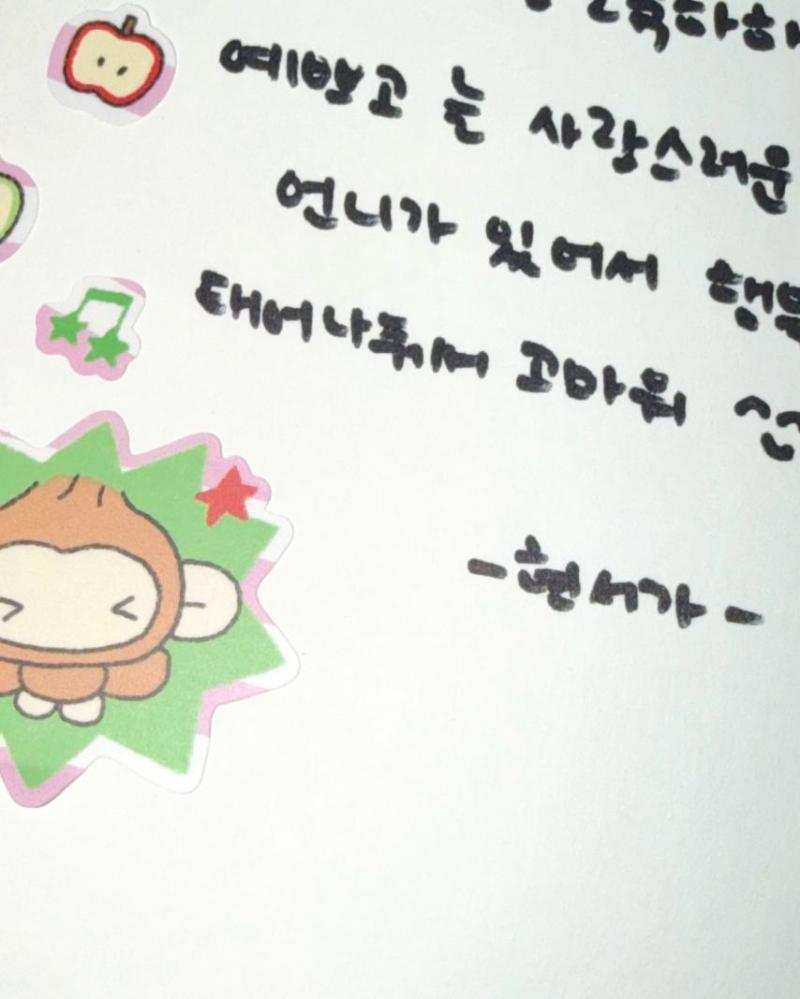 축하해
예쁘고 늘 사랑스러운
언니가 있어서 행복
태어나줘서 고마워
-현서가-